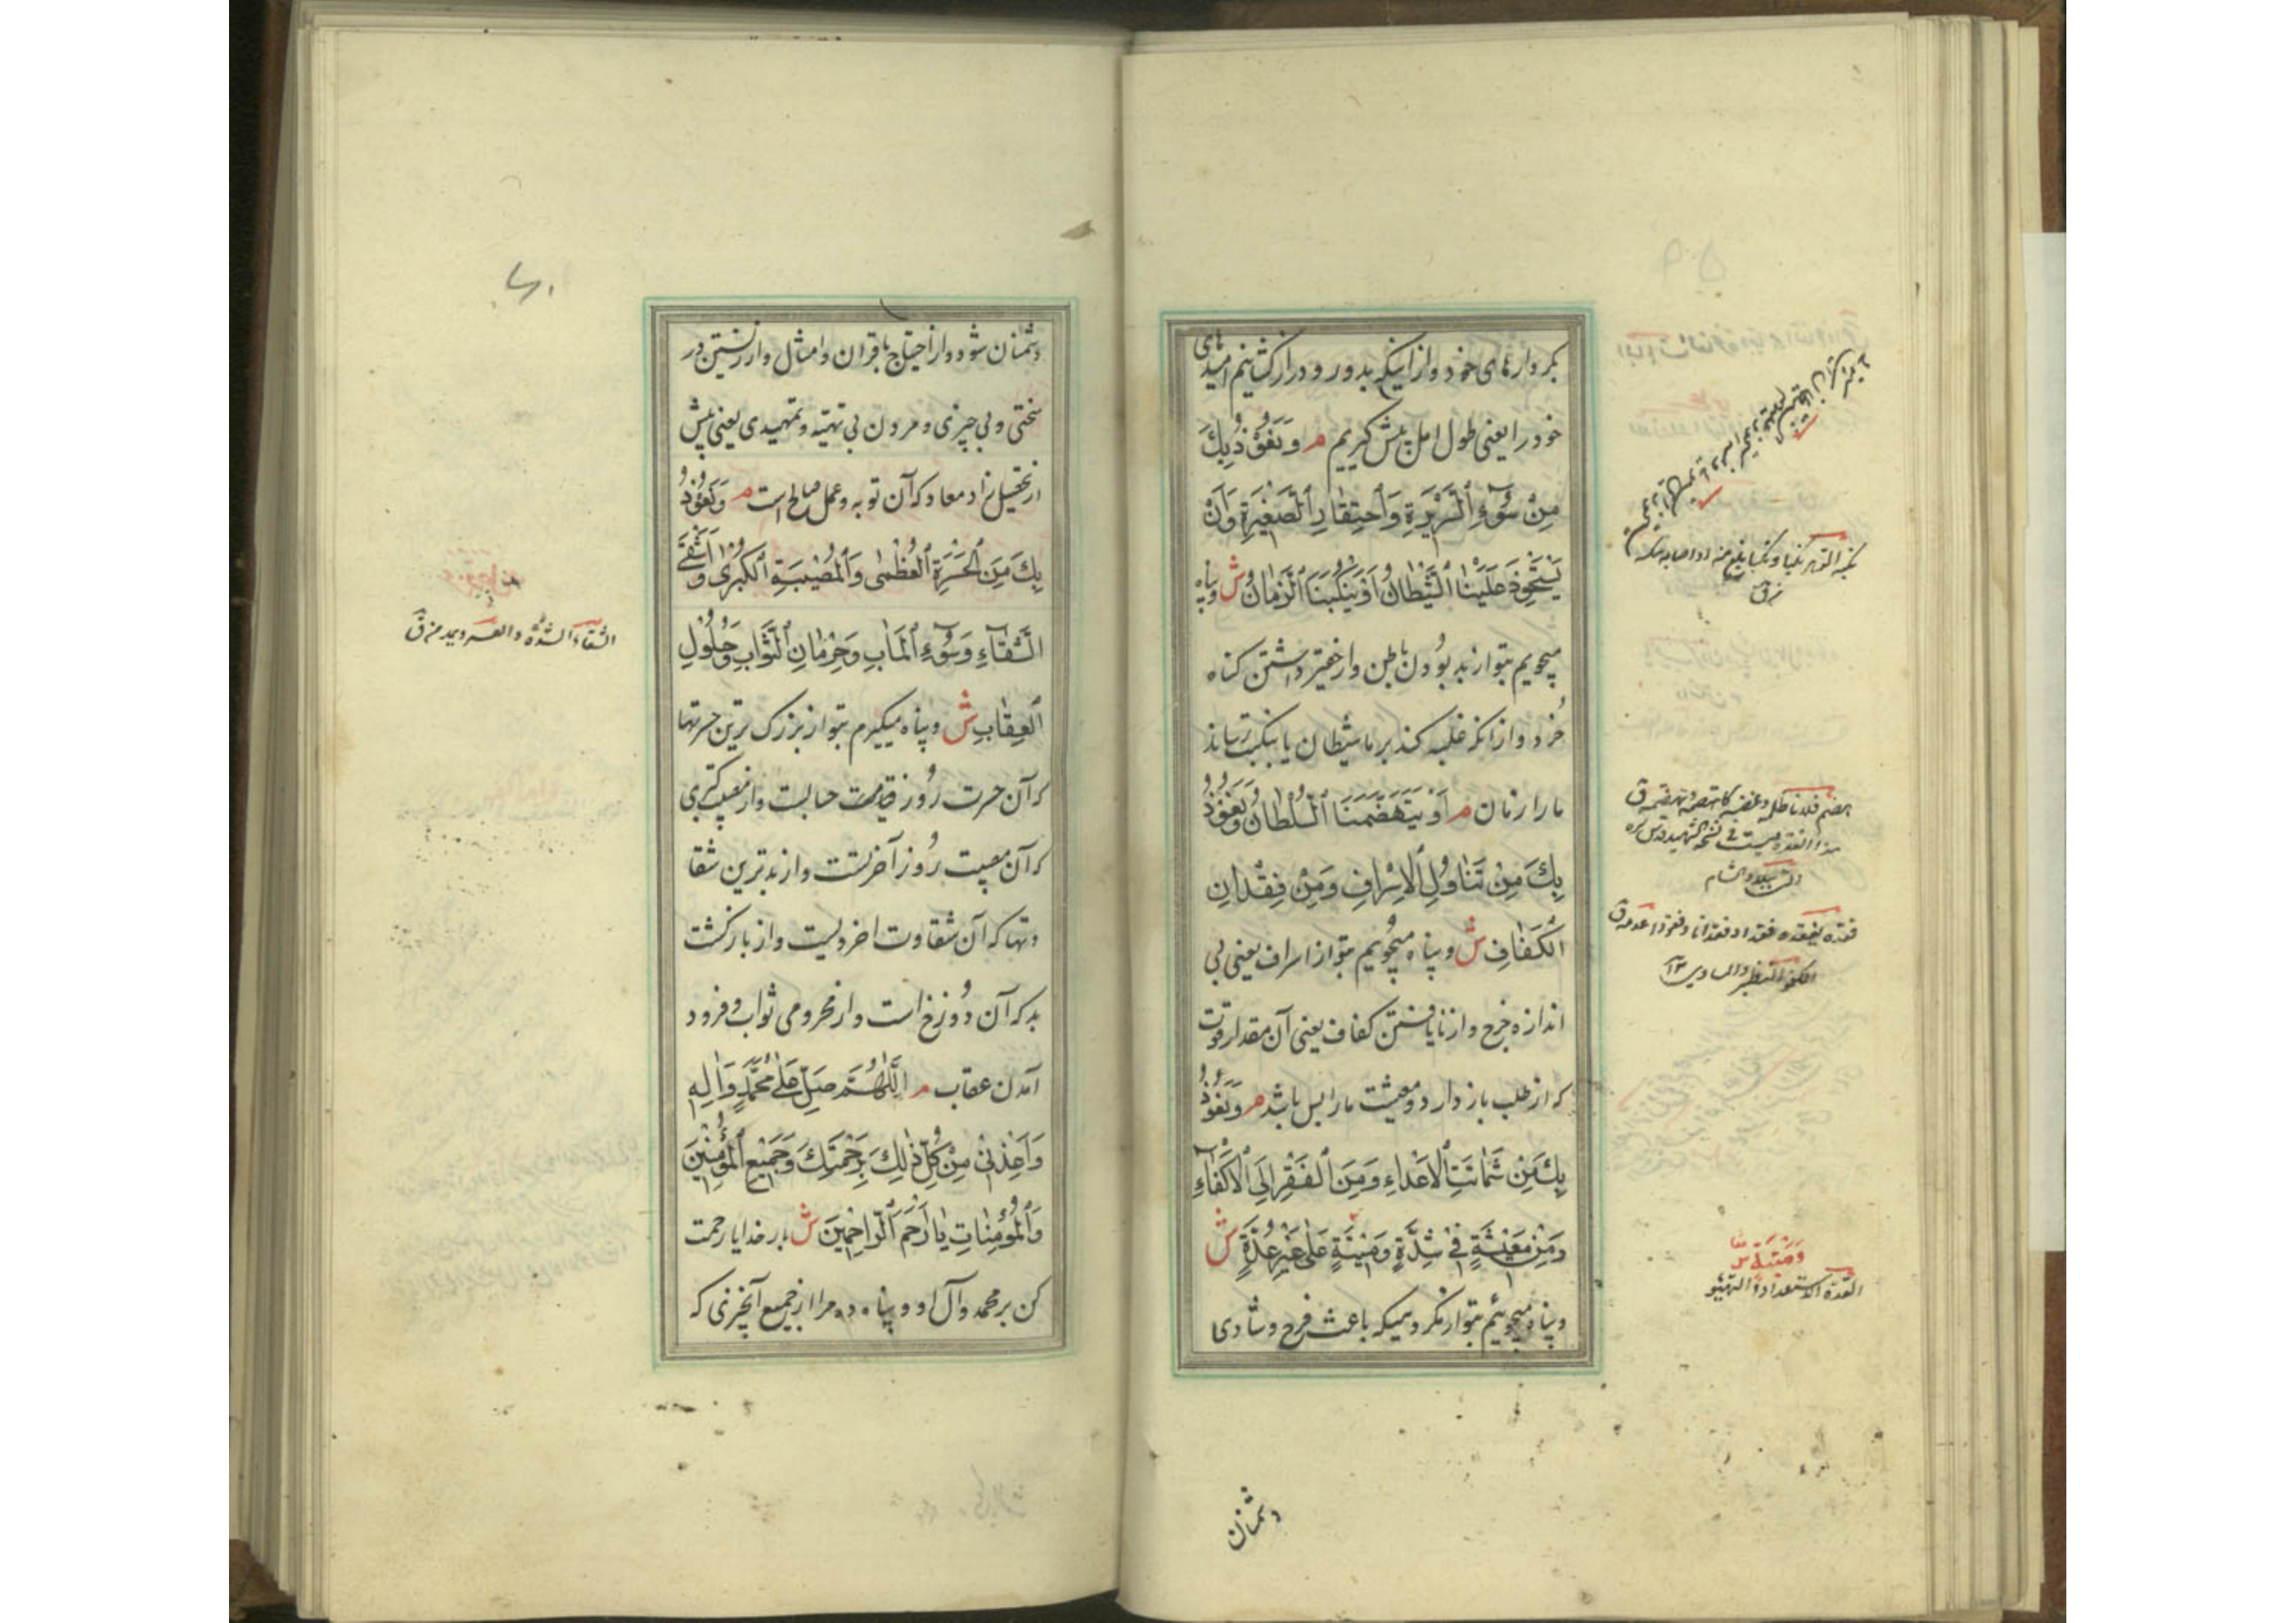 بکردارهای خود و از اینکه بدور و دراز کشانیم امیدهای
خود را یعنی طول امل پیش گیریم م وَنَعُوذُ بِكَ
مِنْ سُوۤءِ ٱلسَّرِيْرَةِ وَٱحْتِقَارِ ٱلصَّغِيْرَةِ وَاَنْ
يَسْتَحْوِذَ عَلَيْنَا ٱلشَّيْطَانُ اَوْ يَنْكُبَنَا ٱلزَّمَانُ ش و پناه
میجویم بتو از بد بُودن باطن و از حقیر داشتن کناه
خُرد و از انکه غلبه کند بر ما شیطان یا بنکبت رساند
ما را زمان م اَوْ يَتَهَضَّمَنَا ٱلسُّلْطَانُ وَنَعُوذُ
بِكَ مِنْ تَنَاوُلِ ٱلاِسْرَافِ وَمِنْ فِقْدَانِ
ٱلْكَفَافِ ش و پناه میجوییم بتو از اسراف یعنی بی
اندازه خرج و از نایافتن کفاف یعنی آن مقدار قوت
که از طلب باز دارد و معیشت ما را بس باشد م وَنَعُوذُ
بِكَ مِنْ شَمَاتَتِ ٱلاَعْدَاءِ وَمِنَ ٱلْفَقْرِ اِلَى ٱلاَكْفَآءِ
وَمِنْ مَعِيْشَةٍ فِيْ شِدَّةٍ وَمِيْتَةٍ عَلَى غَيْرِ عُدَّةٍ ش
و پناه میجوئیم بتو از مکروهیکه باعث فرح و شادی
العدة الاستعداد و التهیؤ
دشمنان
دشمنان شود و از احتیاج باقران و امثال و از زیستن در
سختی و بی چیزی و مردن بی تهیّه و تمهیدی یعنی پیش
از تحصیل زاد معاد که آن توبه و عمل صالح است م وَنَعُوذُ
بِكَ مِنَ ٱلْحَسْرَةِ ٱلْعُظْمٰى وَٱلْمُصِيْبَةِ ٱلْكُبْرٰى وَاَشْقَى
ٱلشَّقَآءِ وَسُوۤءِ ٱلْمَاٰبِ وَحِرْمَانِ ٱلثَّوَابِ وَحُلُوْلِ
ٱلْعِقَابِ ش و پناه میگیرم بتو از بزرک ترین حسرتها
که آن حسرت رُوز قیامت است و از مصیبت کبری
که آن مصیبت رُوز آخرتست و از بدترین شقا
وتها که آن شقاوت اخرویست و از بازکشت
بد که آن دُوزخ است و از محرومی ثواب و فرود
آمدن عقاب م اَللّٰهُمَّ صَلِّ عَلَى مُحَمَّدٍ وَاٰلِهِ
وَاَعِذْنِيْ مِنْ كُلِّ ذٰلِكَ بِرَحْمَتِكَ وَجَمِيْعَ ٱلْمُؤْمِنِيْنَ
وَٱلْمُؤْمِنَاتِ يَا اَرْحَمَ ٱلرَّاحِمِيْنَ ش بار خدایا رحمت
کن بر محمد و آل او و پناه ده مرا از جمیع آنچیزی که